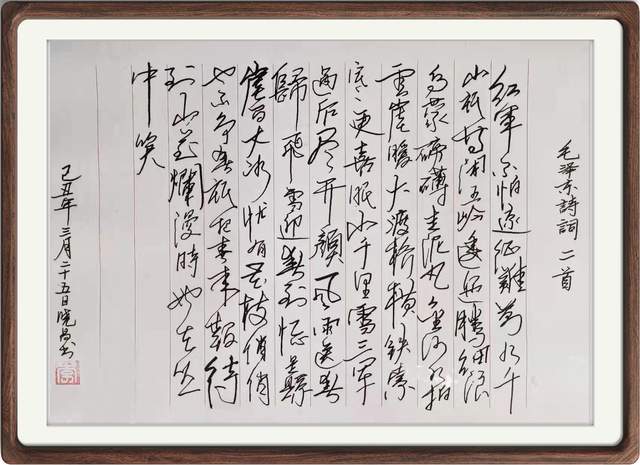 毛泽东詩詞二首
红軍不怕遠征難萬水千
山祇等闲五岭逶迤騰细浪
乌蒙磅礴走泥丸金沙水拍
雲崖暖大渡桥横铁索
寒更喜岷山千里雪三军
过后尽开颜風雨送春
歸飛雪迎春到已是懸
崖百丈冰犹有花枝俏俏
也不争春祇把春来報待
到山花爛漫時她在丛
中笑
己丑年三月二十五日晓昌书